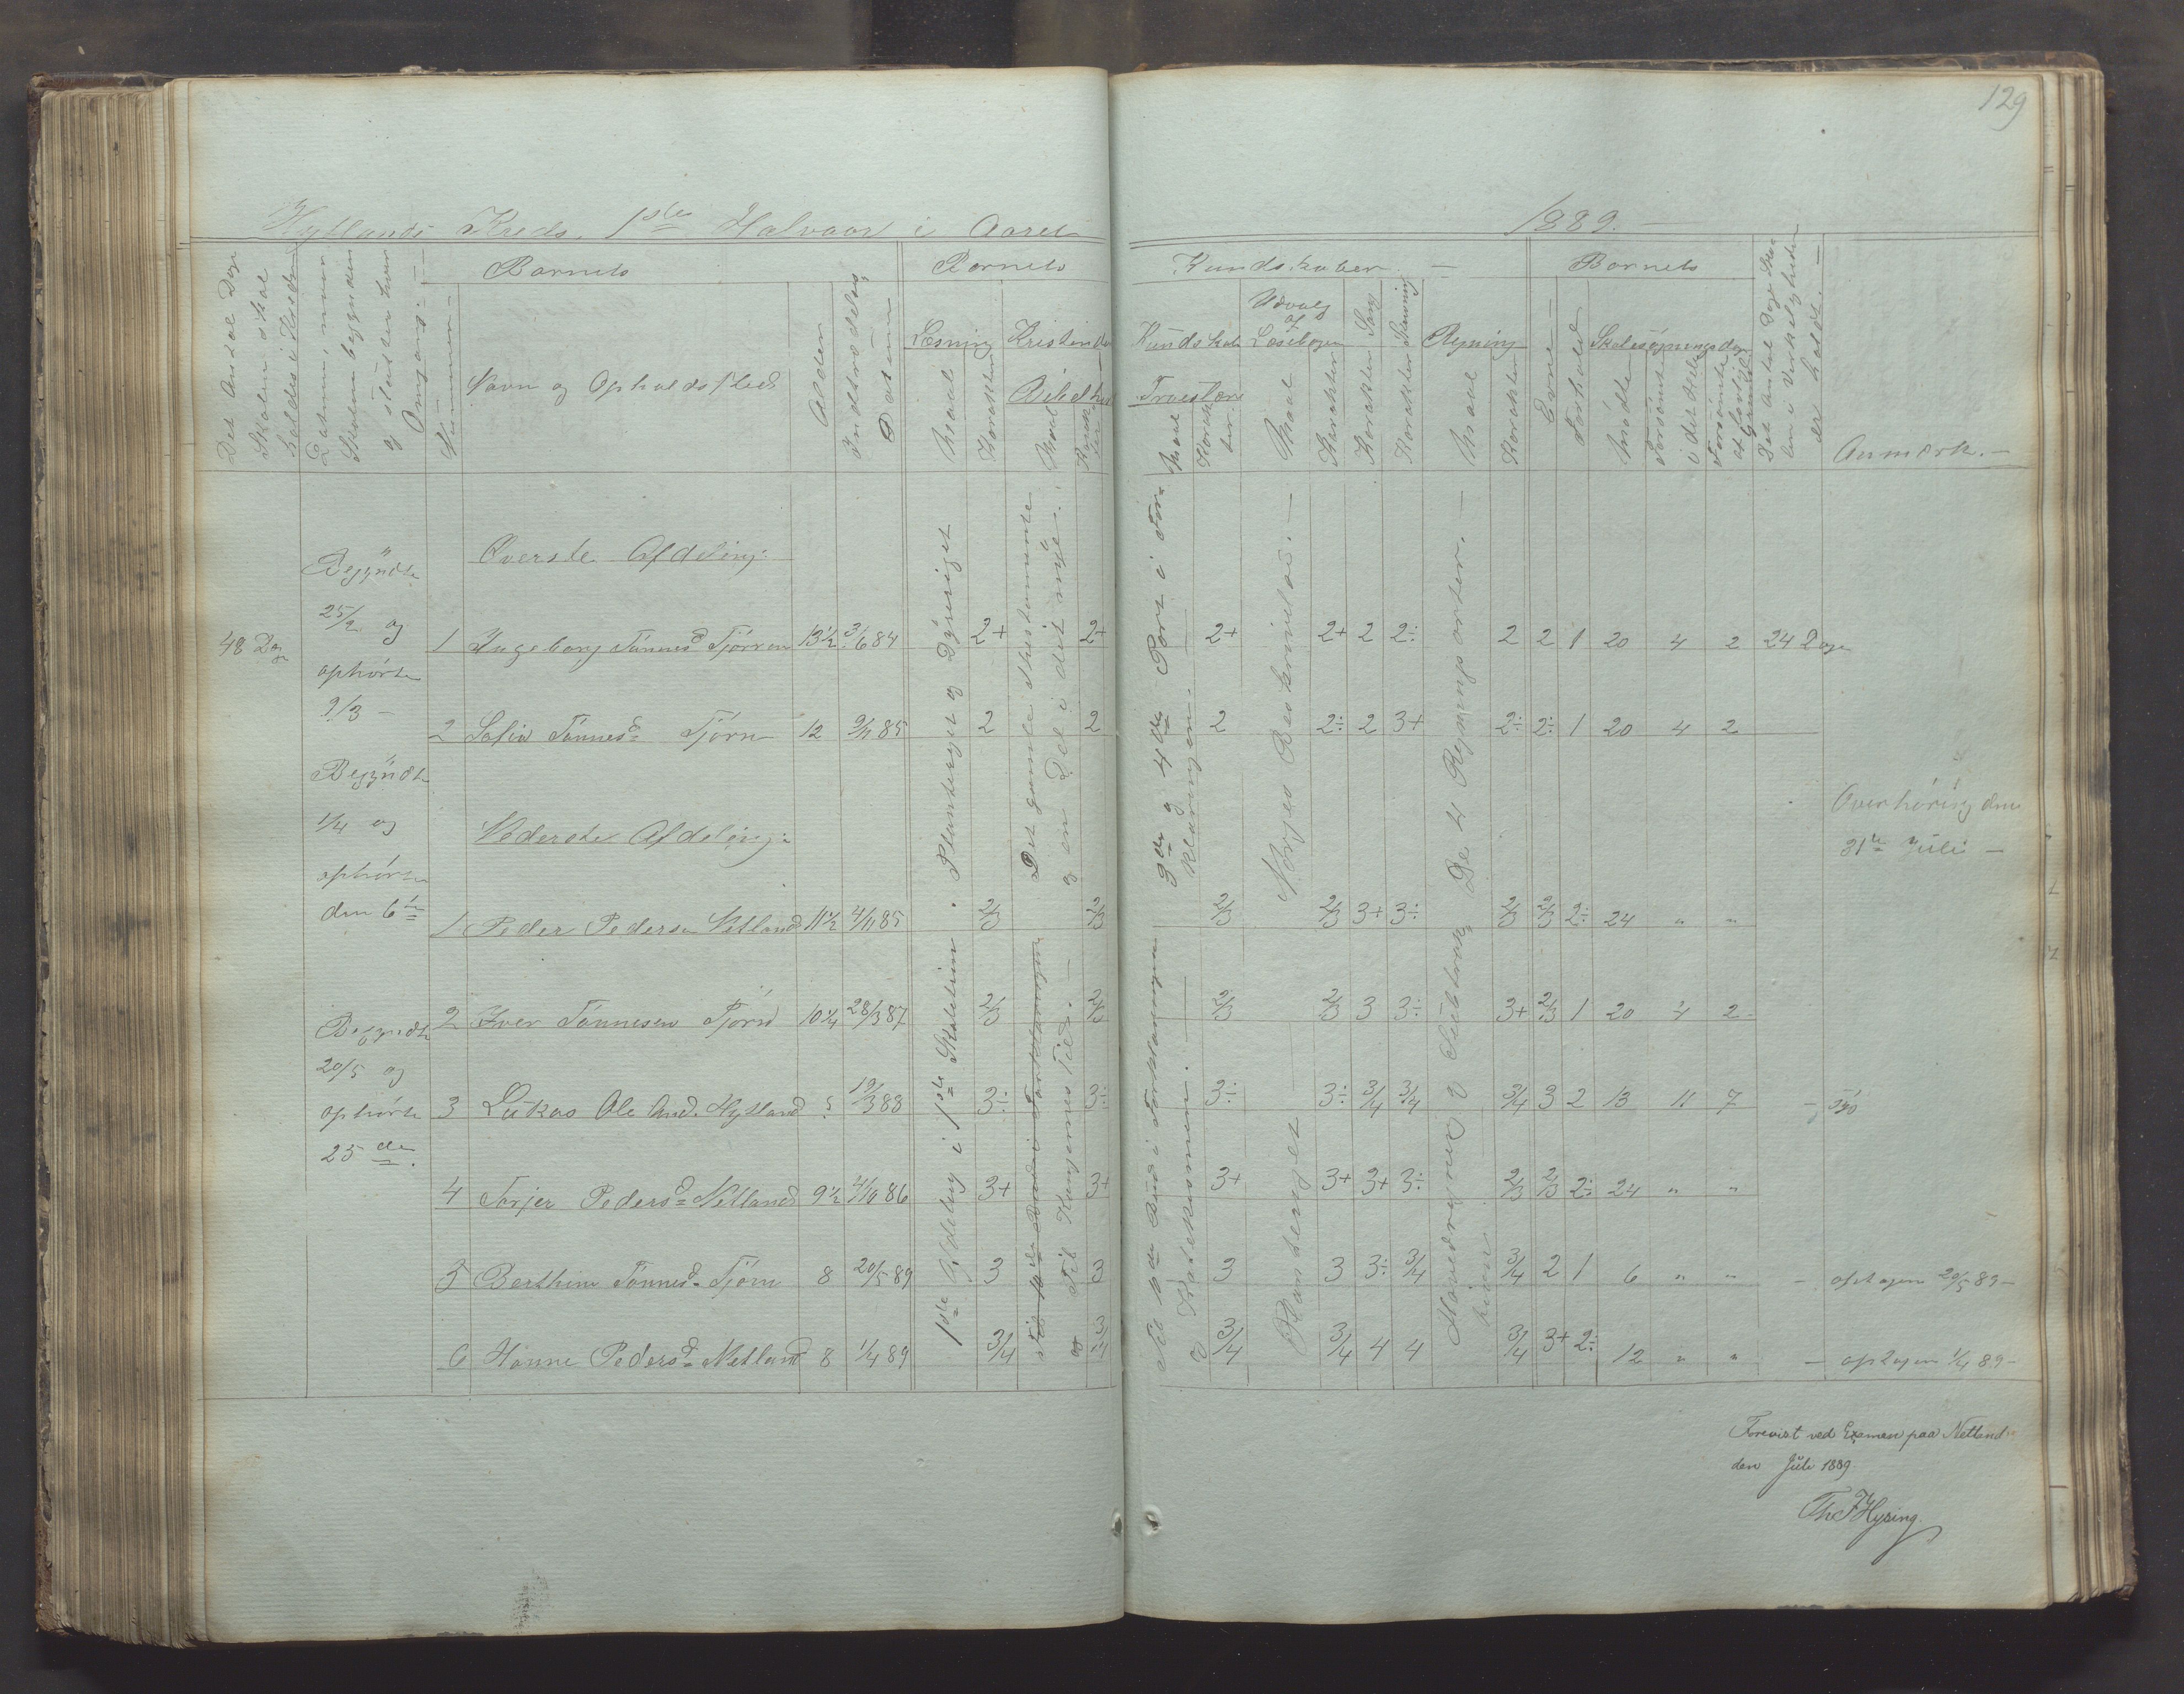 129
Hytlands Kreds. 1ste Halvaar i Aaret 1889. —
Det Antal Dage Skolen skal holdes i Kredsen
Datum, naar Skolen begynder og slutter hver Omgang. —
Nummer —
Barnets
Navn og Opholdssted
Alder
Indtrædelses Datum
Barnets Kundskaber —
Læsning
Maal
Karakter
Kristendoms Kundskab
Bibelhist
Maal
Karakter
Troeslære
Maal
Karakter.
Udvalg af Læsebogen
Maal
Karakter
Karakter Sang
Karakter Skrivning
Regning
Maal
Karakter
Barnets
Evne —
Forhold
Skolesøgningsdage
Mødte
Forsømte i det Hele
Forsømte af lovlig Grund
Det Antal Dage Skolen i Virkeligheden er holdt. —
Anmærk. —
48 Dage
Begyndte
25/2 og
ophørte
9/3 —
Begyndte
1/4 og
ophørte
den 6te
Begyndte
20/5 og
ophørte
25 de.
Øverste Afdeling:
1 Ingeborg Tønnesd Tjørn 13½ 3/6 84 2+ 2+ 2+ 2+ 2 2÷ 2 2 1 20 4 2 24 Dage
2 Sofia Tønnesd Tjørn 12 9/11 85 2 2 2 2÷ 2 3+ 2÷ 2÷ 1 20 4 2
Nederste Afdeling:
1 Peder Pedersen Netland 11½ 4/11 85 2/3 2/3 2/3 2/3 3+ 3÷ 2/3 2/3 2÷ 24 " "
2 Iver Tønnesen Tjørn 10¼ 28/3 87 2/3 2/3 2/3 2/3 3 3÷ 3+ 2/3 1 20 4 2
3 Lukas Ole And. Hytland 19/3 88 3÷ 3÷ 3÷ 3÷ 3/4 3/4 3/4 3 2 13 11 7 —
4 Torjer Pedersd Netland 9½ 4/10 86 3+ 3+ 3+ 3+ 3+ 3÷ 2/3 2/3 2÷ 24 " "
5 Berthine Tønnesd Tjørn 8 20/5 89 3 3 3 3 3÷ 3/4 3/4 2 1 6 " " — optagen 20/5 89 —
6 Hanne Pedersd Netland 8 1/4 89 3/4 3/4 3/4 3/4 4 4 3/4 3+ 2÷ 12 " " — optagen 1/4 89 —
Planteriget og Dyreriget
Det gamle Testamente og en Del i det nye.
3die og 4de Part i Forklaringen. —
Norges Beskrivelse. —
De 4 Regningsarter. —
1ste Afdeling i 1ste Skoletrin.
og Til Kongernes Tid. —
Til 10de Bud i Forklaringen og Katekismen. —
Planteriget
Hovedregning og Subtraktion
Overhøring den
31te Juli —
Forevist ved Examen paa Netland
den Juli 1889.
Th F Hysing.